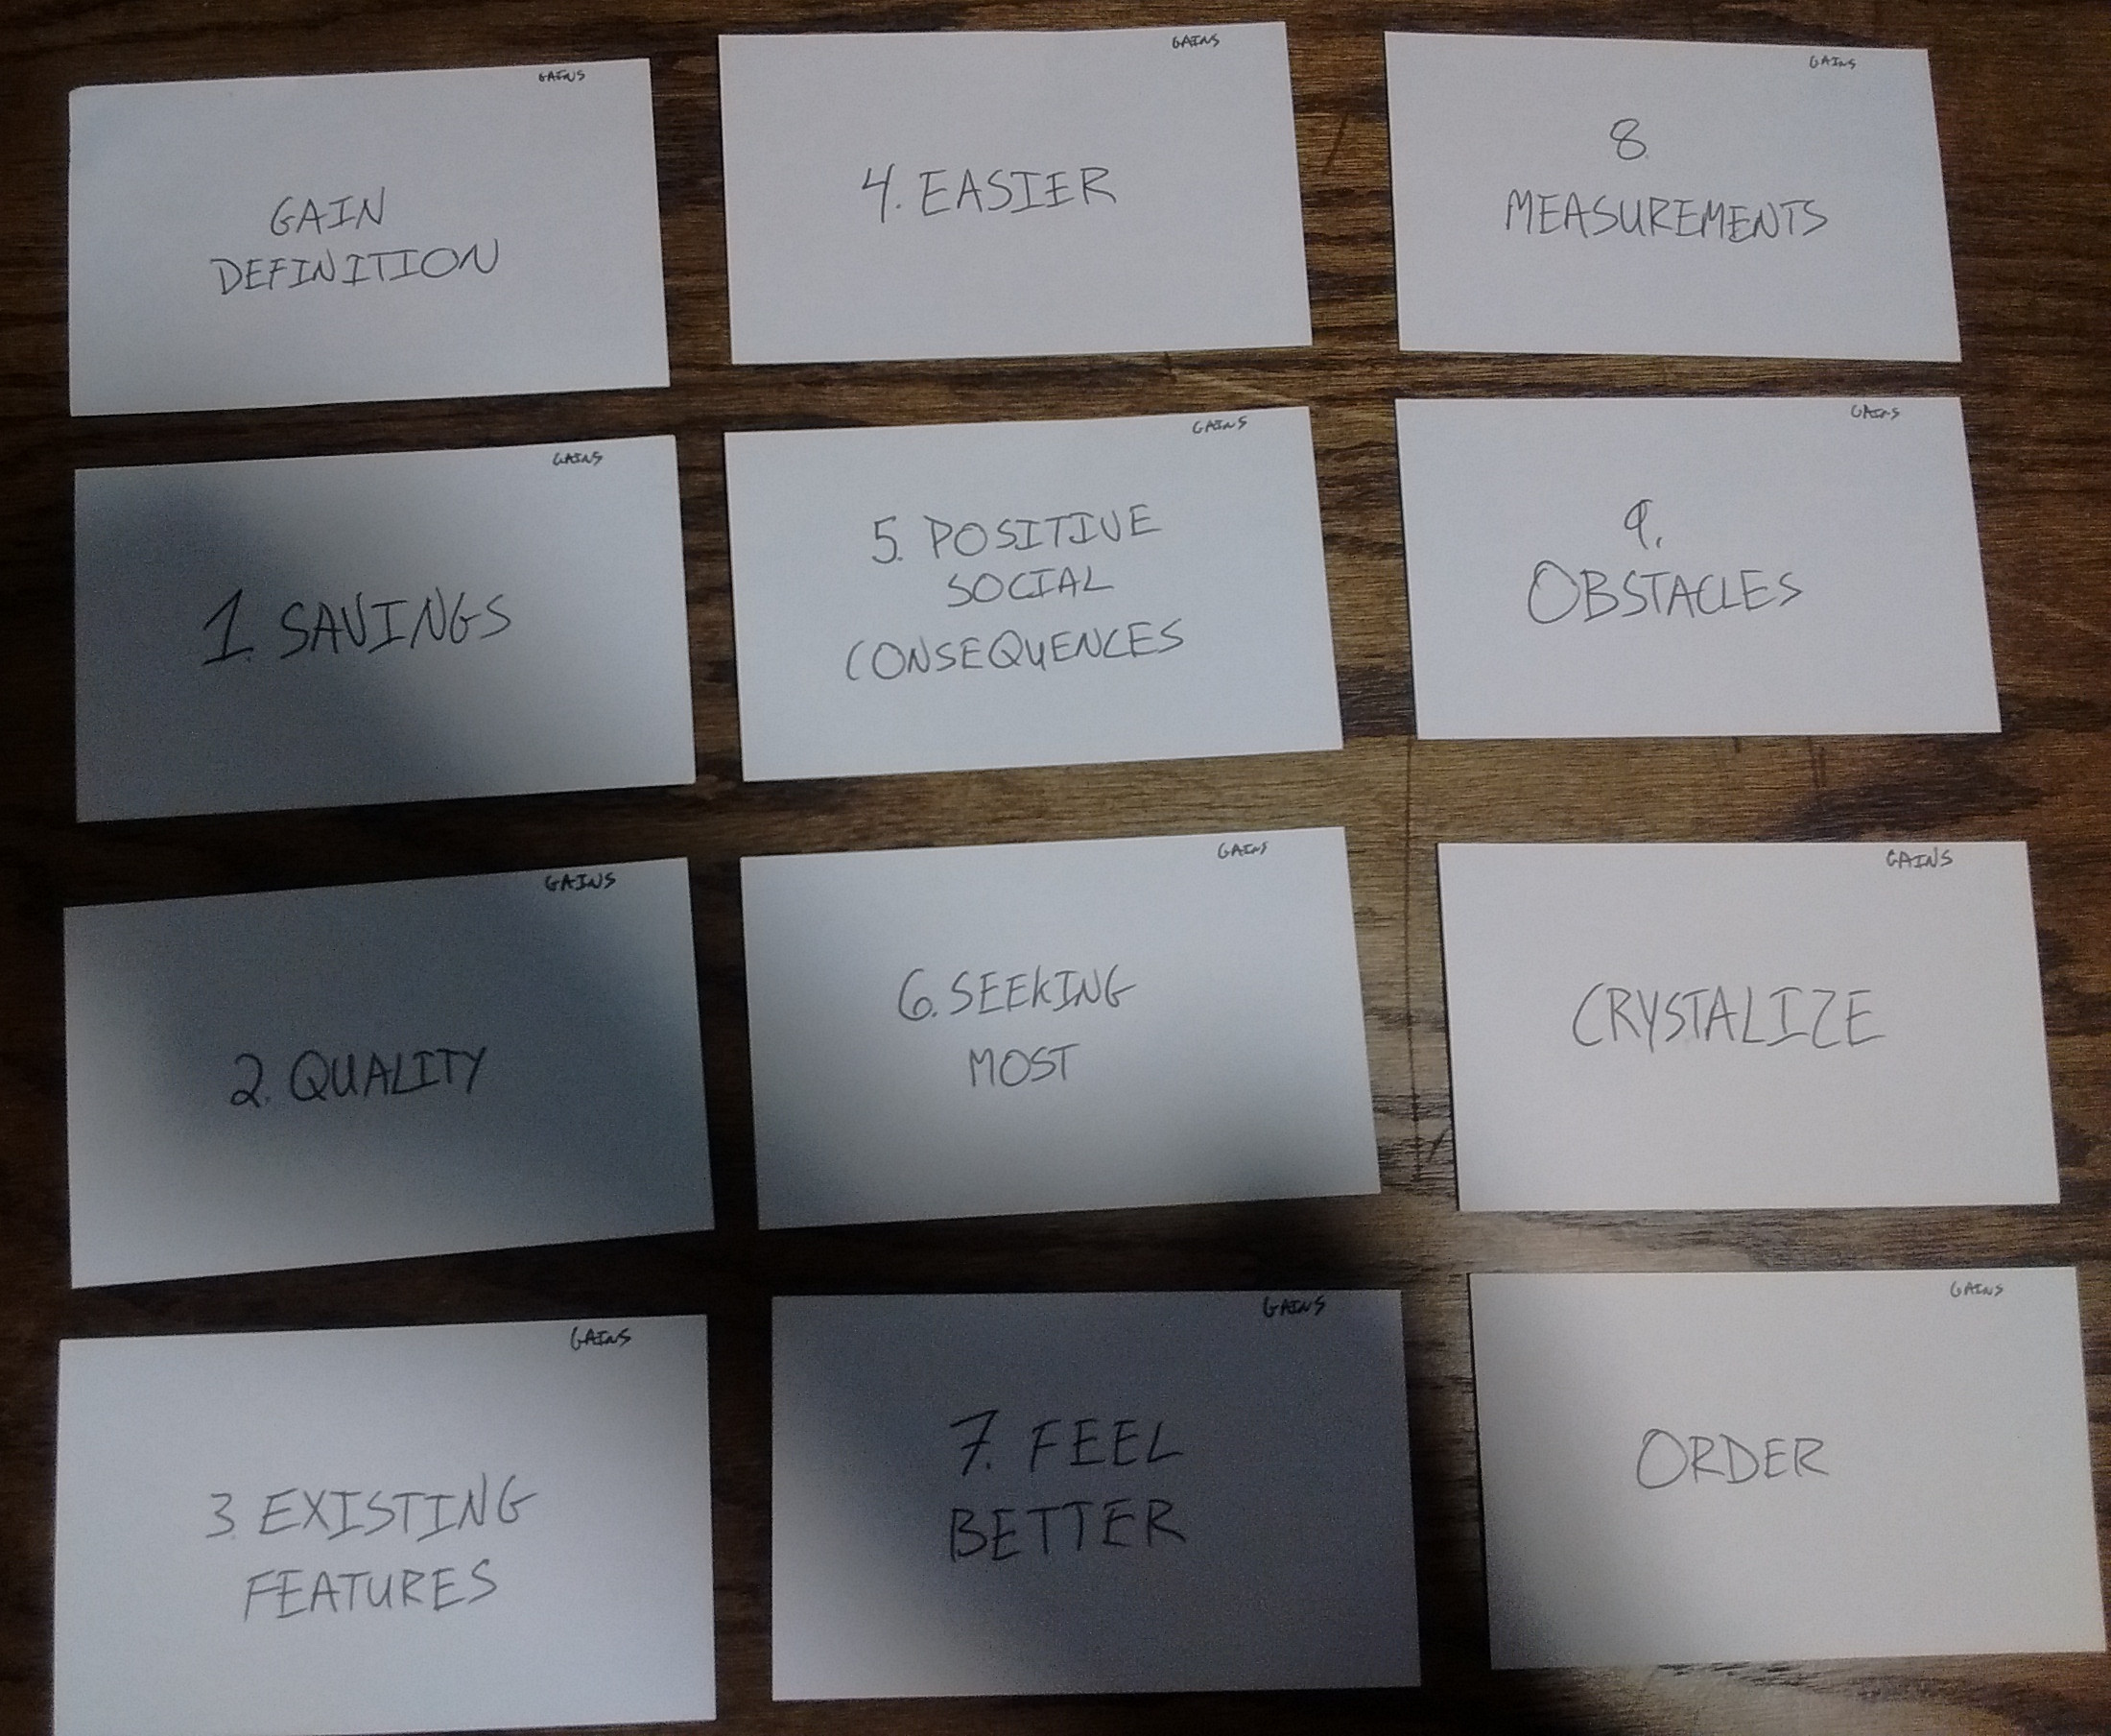 GAINS
GAIN
DEFINITION
GAINS
1. SAVINGS
GAINS
2. QUALITY
GAINS
3. EXISTING
FEATURES
GAINS
4. EASIER
GAINS
5. POSITIVE
SOCIAL
CONSEQUENCES
GAINS
6. SEEKING
MOST
GAINS
7. FEEL
BETTER
GAINS
8.
MEASUREMENTS
GAINS
9.
OBSTACLES
GAINS
CRYSTALIZE
GAINS
ORDER